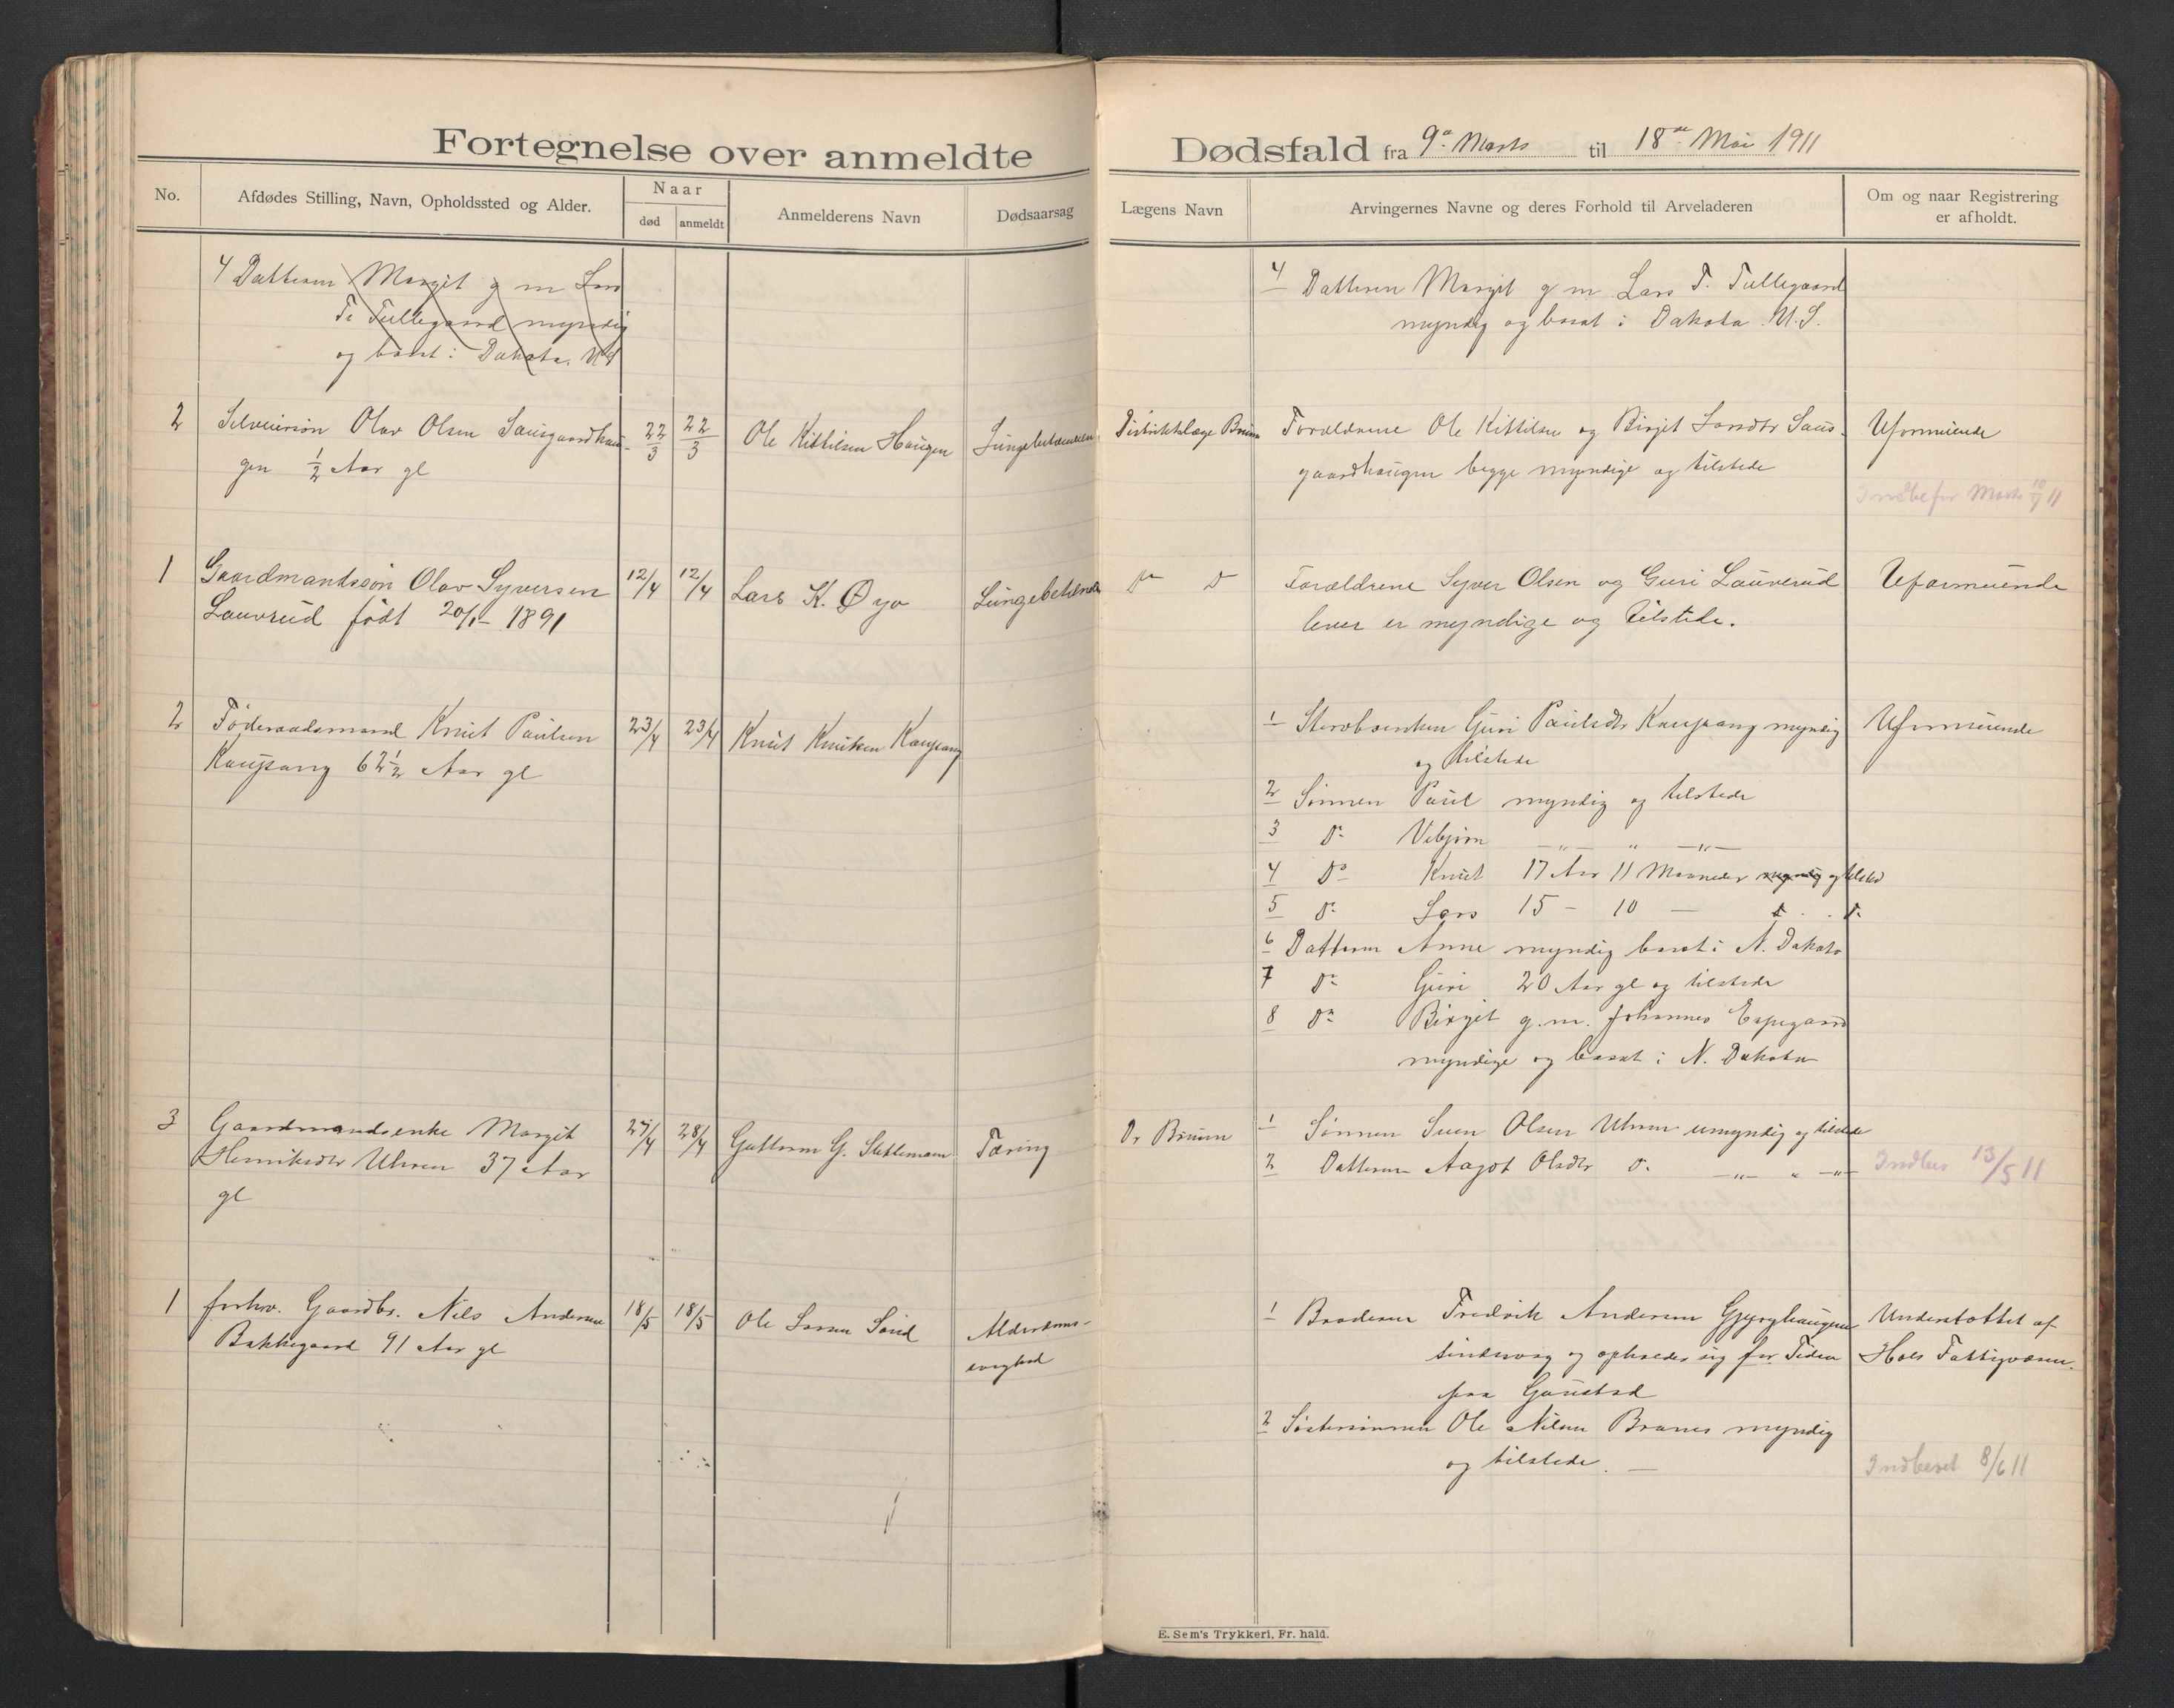 Fortegnelse over anmeldte Dødsfald fra 9de Marts til 18de Mai 1911
No.
Afdødes Stilling, Navn, Opholdssted og Alder.
Naar
død
anmeldt
Anmelderens Navn
Dødsaarsag
Lægens Navn
Arvingernes Navne og deres Forhold til Arveladeren
Om og naar Registrering
er afholdt.
4 Datteren Margit g m Lars
T. Tullegaard myndig
og bosat i Dakota. U.S
4 Datteren Margit g m Lars T. Tullegaard
myndig og bosat i Dakota U.S.
2 Selveiersøn Olav Olsen Sausgaardhau-
gen ½ Aar gl
22/3 22/3 Ole Kittilsen Haugen
Distriktslæge Bruun
Forældrene Ole Kittilsen og Birgit Larsdtr Saus-
gaardhaugen begge myndige og tilstede
Uformuende
1 Gaardmandssøn Olav Syversen
Lauvrud født 20/1 - 1891
12/4 12/4 Lars K. Øyo
Do Do
Forældrene Syver Olsen og Guri Lauvrud
lever er myndige og tilstede.
Uformuende
2 Føderaadsmand Knut Paulsen
Kaupang 62½ Aar gl
23/4 23/4 Knut Knutsen Kaupang
1 Guri Paulsdtr Kaupang myndig
og tilstede
Uformuende
2 Sønnen Paul myndig og tilstede
3 Do Vebjørn —"— " —"—
4 Do Knut 17 Aar 11 Maaneder myndig og tilsted
5 Do Lars 15 - 10 — Do
6 Datteren Anne myndig bosat i N. Dakota
7 Do Guri 20 Aar gl og tilstede
8 Do Birgit g.m. Johannes Espegaard
myndige og bosat i N. Dakota
3 Gaardmandsenke Margit
Henriksdtr Uhren 37 Aar
gl
27/4 28/4 Guttorm G. Sletlemoen Tæring
Dr Bruun
1 Sønnen Sven Olsen Uhren umyndig og tilstede
2 Datteren Aagot Olsdtr Do —"— " —"—
Indber 13/5 11
1 forhv. Gaardbr. Nils Andersen
Bakkegaard 91 Aar gl
18/5 18/5 Ole Larsen Sand
Alderdoms-
svaghed
1 Broderen Fredrik Andersen
sindssvag og opholder sig for Tiden
paa Gaustad
Understøttet af
Hols Fattigvæsen.
2 Søstersønnen Ole Nilsen Branes myndig
og tilstede. —
Indberet 8/6 11
E. Sem's Trykkeri, Fr. hald.